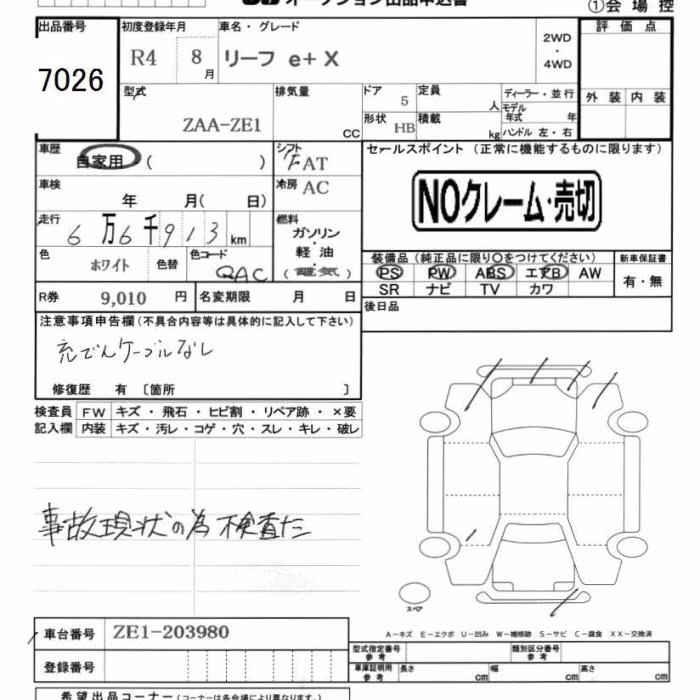 オークション出品申込書
①会場控
出品番号
7026
初度登録年月
R4 8月
車名・グレード
リーフ e+ X
2WD
・
4WD
評価点
外装 内装
型式
ZAA-ZE1
排気量
CC
ドア 5
形状 HB
定員 人
積載 kg
ディーラー・並行
モデル年式 年
ハンドル 左・右
車歴
自家用 ( )
シフト
FAT
車検
年 月( 日)
冷房 AC
走行
6万6千913km
燃料
ガソリン
・
軽油
・
(電気)
色
ホワイト
色替
色コード
QAC
R券 9,010 円
名変期限 月 日
セールスポイント (正常に機能するものに限ります)
NOクレーム・売切
装備品 (純正品に限り○をつけてください)
PS PW ABS エアB AW
SR ナビ TV カワ
新車保証書
有・無
後日品
注意事項申告欄(不具合内容等は具体的に記入して下さい)
充でんケーブルなし
修復歴 有 〔箇所 〕
検査員記入欄
FW キズ・飛石・ヒビ割・リペア跡・×要
内装 キズ・汚レ・コゲ・穴・スレ・キレ・破レ
事故現状の為 検査だ
スペア
A－キズ E－エクボ U－凹み W－補修跡 S－サビ C－腐食 XX－交換済
車台番号 ZE1-203980
登録番号
型式指定番号 参考
類別区分番号 参考
車庫証明用 参考
長さ cm 幅 cm 高さ cm
希望出品コーナー(コーナーは各会場により異なります)